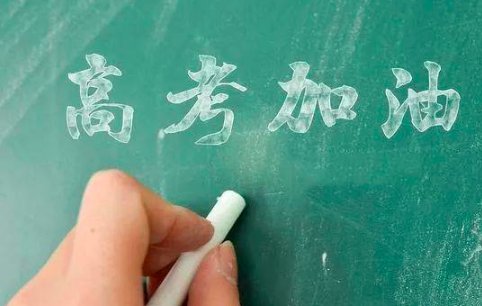 高考加油